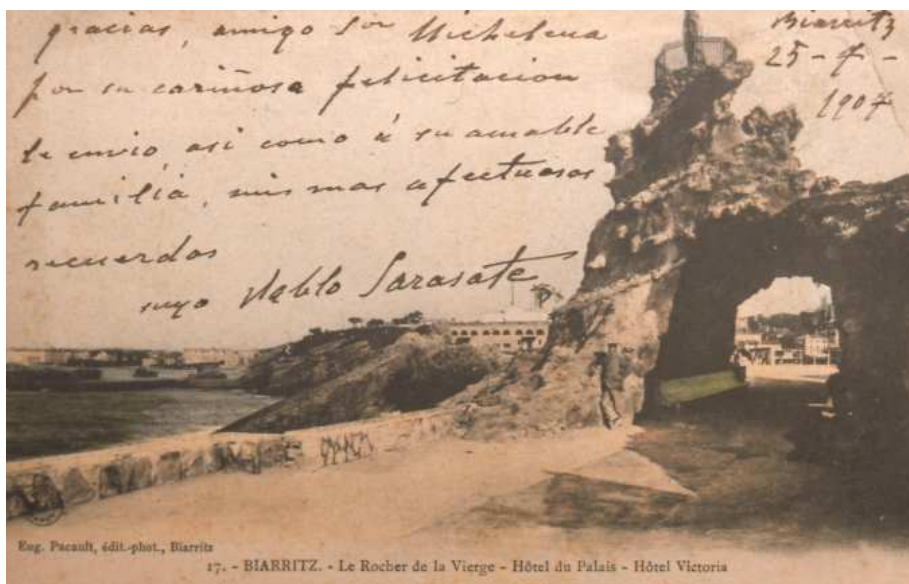 gracias, amigo Sor Michelena
por su cariñosa felicitacion
le envio, asi como á su amable
familia, mis mas afectuosos
recuerdos
suyo Pablo Sarasate
Biarritz
25-7-
1907
Eug. Pacault, édit.-phot., Biarritz
17. - BIARRITZ. - Le Rocher de la Vierge - Hôtel du Palais - Hôtel Victoria